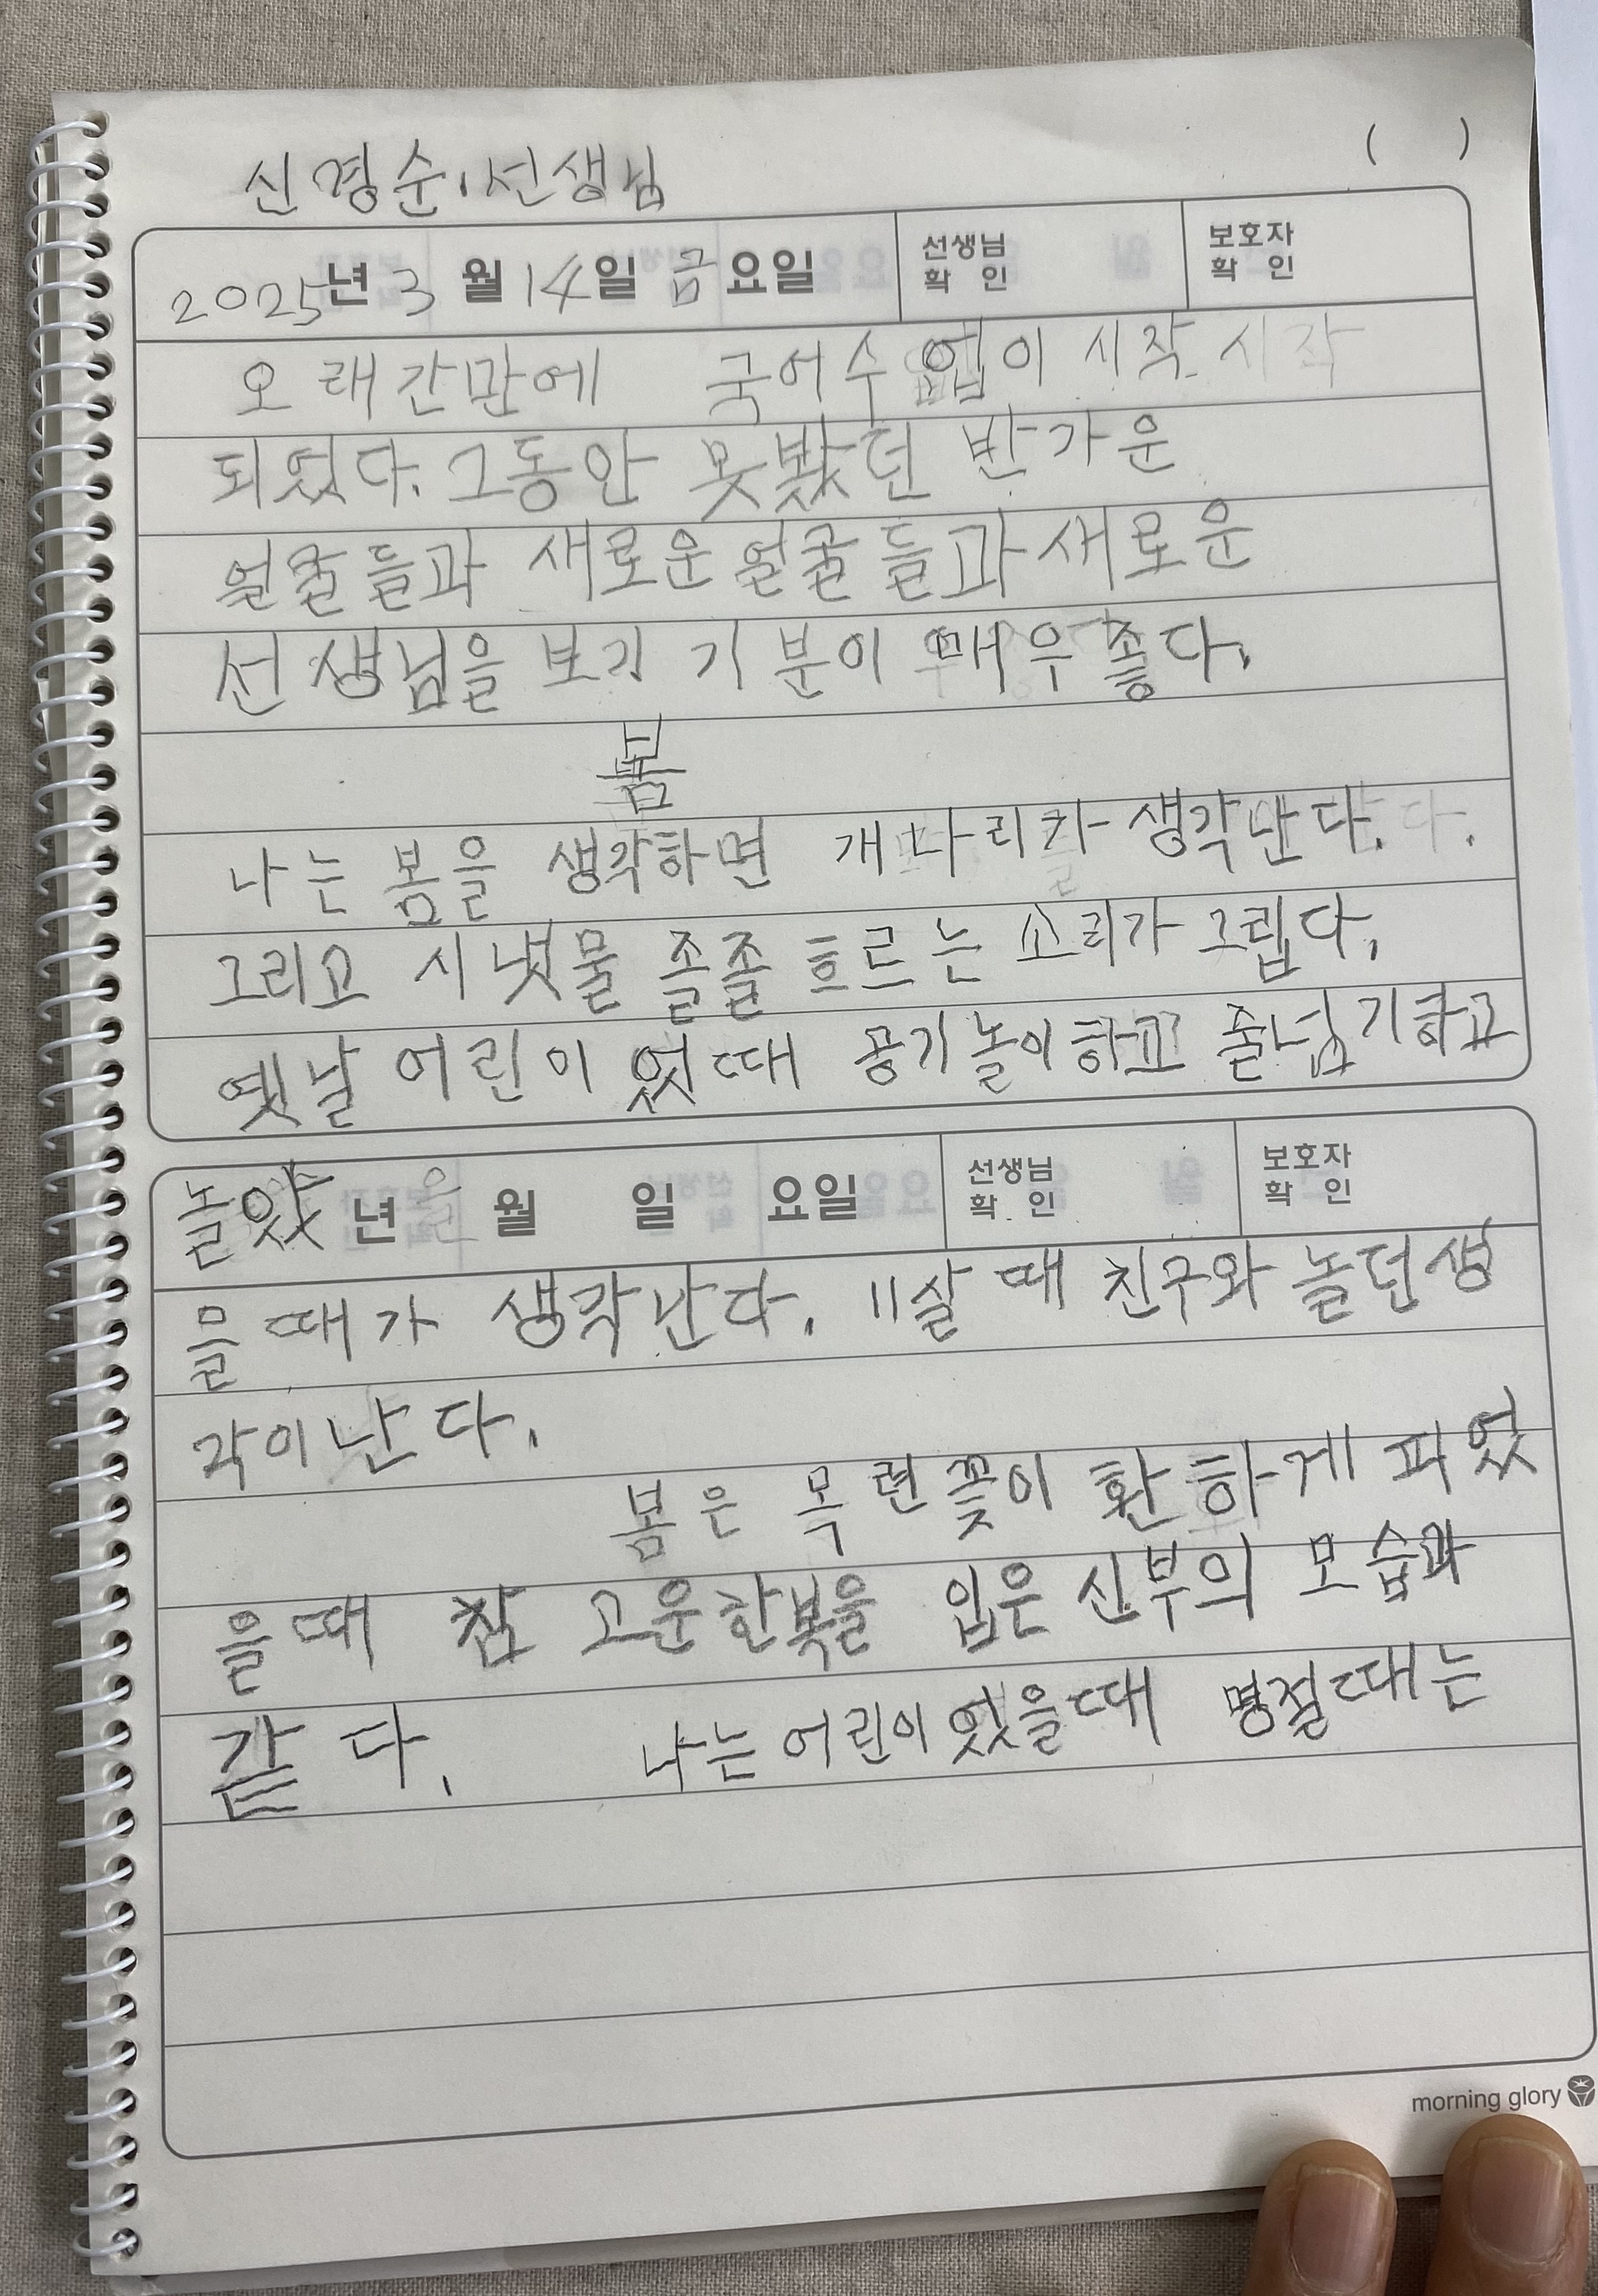 ( )
신경순, 선생님
2025년 3 월 14일 금요일 선생님 확 인 보호자 확 인
오래간만에 국어수업이 시작 시작
되었다. 그동안 못봤던 반가운
얼굴들과 새로운 얼굴들과 새로운
선생님을 보기 기분이 매우 좋다.
봄
나는 봄을 생각하면 개나리가 생각난다. 다.
그리고 시냇물 졸졸 흐르는 소리가 그립다,
옛날 어린이 었때 공기놀이하고 줄넘기하고
놀았 년 을 월 일 요일 선생님 확 인 보호자 확 인
을 때가 생각난다. 11살 때 친구와 놀던생
각이난다.
봄은 목련꽃이 환하게 피었
을때 참 고운한복을 입은 신부의 모습과
같다. 나는 어린이었을때 명절때는
morning glory